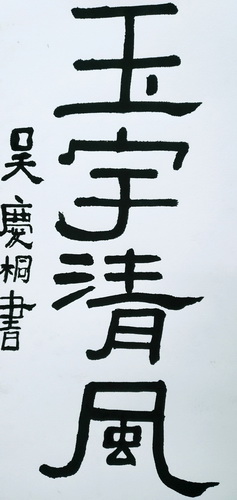 玉宇清風
吴慶桐書